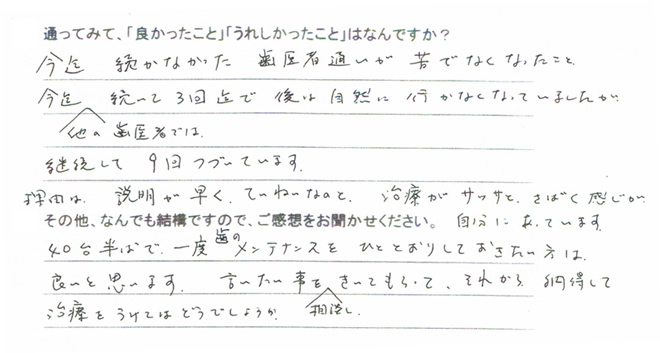 通ってみて、「良かったこと」「うれしかったこと」はなんですか？
今迄 続かなかった 歯医者通いが 苦でなくなったこと
今迄 続いて 3回迄で 後は 自然に 行かなくなっていましたが
他の 歯医者では
継続して 9回 つづいています。
理由は、 説明が 早く、ていねいなのと、 治療が サッサと、さばく 感じが
その他、なんでも結構ですので、ご感想をお聞かせください。 自分に あっています。
40台半ばで、一度 歯の メンテナンスを ひととおりしておきたい 方は
良いと思います。 言いたい 事を きいてもらって、それから 納得して
治療を うけてはどうでしょうか。 相談し、